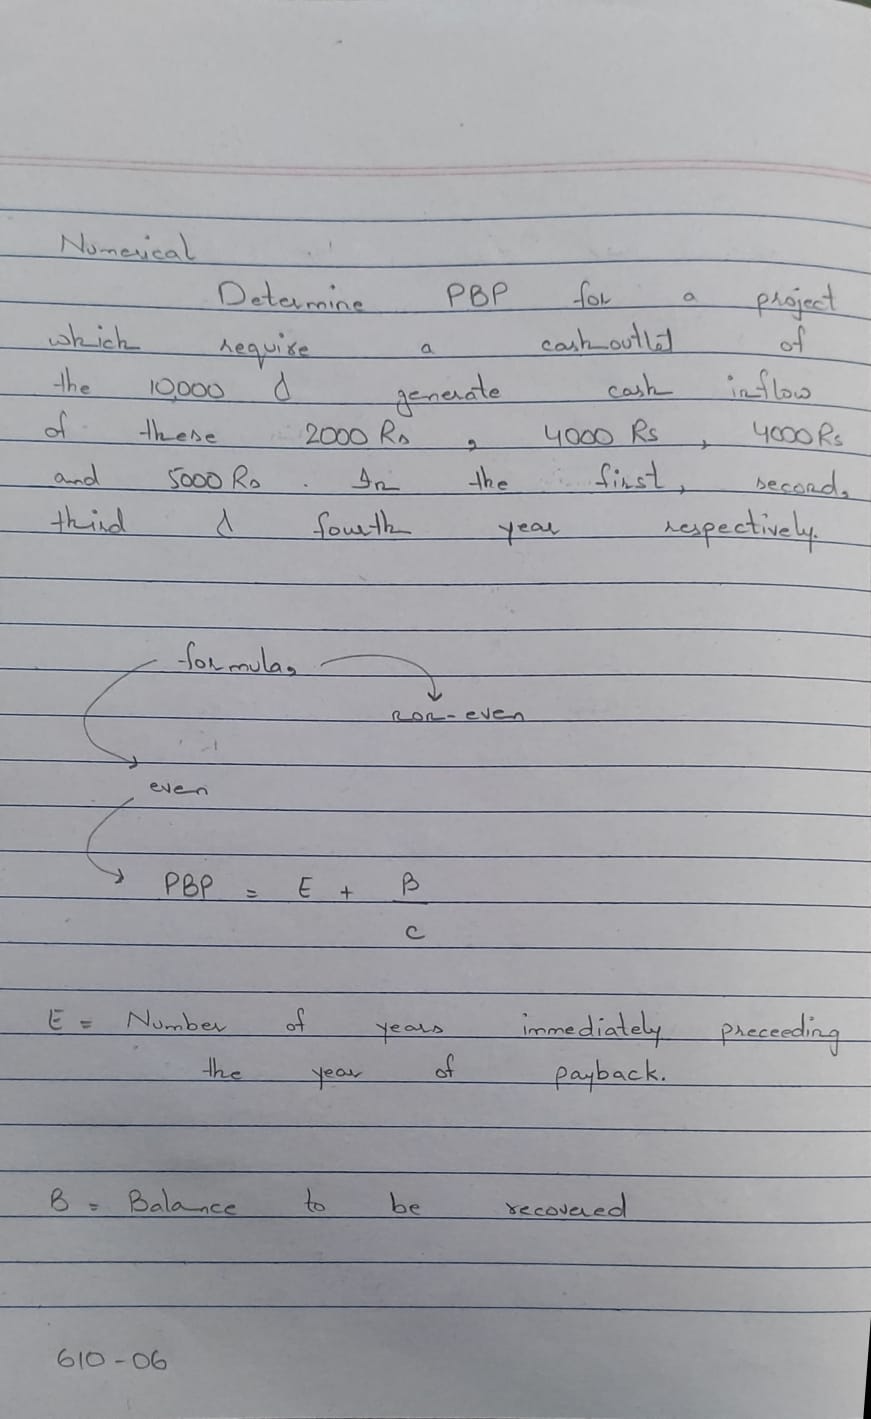 Numerical
Determine PBP for a project
which require a cash outlet of
the 10,000 & generate cash inflow
of these 2000 Rs, 4000 Rs, 4000 Rs
and 5000 Rs. In the first, second,
third & fourth year respectively.
formula,
non-even
even
PBP = E + B
C
E = Number of years immediately preceeding
the year of payback.
B = Balance to be recovered
610-06